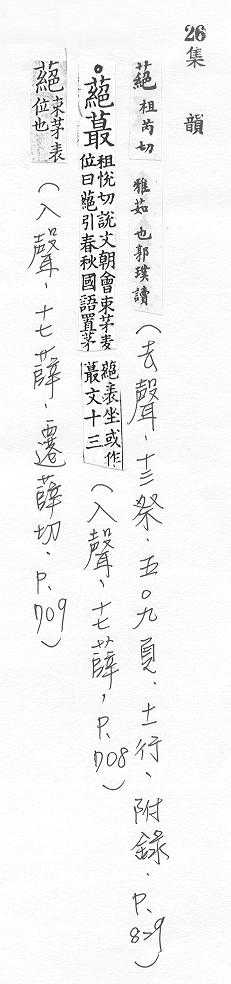 26集韻
蕝祖芮切雅茹也郭璞讀(去聲、十三祭.五○九頁.土行、附錄.P.829)
。蕝蕞祖悅切說文朝會束茅表位曰蕝引春秋國語置茅蕝表坐或作蕞文十三(入聲、十七薛,P.708)
蕝束茅表位也(入聲,十七薛.遷薛切.P.709)